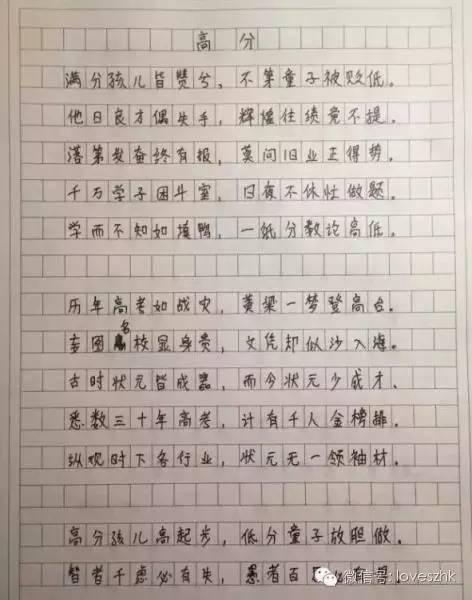 高分
满分孩儿皆赞兮，不第童子被贬低。
他日良才偶失手，辉煌往绩竟不提。
落第发奋终有报，莫问旧业正得势。
千万学子困斗室，日夜不休忙做题。
学而不知如填鸭，一纸分数论高低。
历年高考如战灾，黄梁一梦登高台。
图名校显身贵，文凭却似沙入海。
古时状元皆成器，而今状元少成才。
悉数三十年高考，计有千人金榜排。
纵观时下各行业，状元无一领袖材。
高分孩儿高起步，低分童子放胆做。
智者千虑必有失，愚者百
微信号: loveszhk